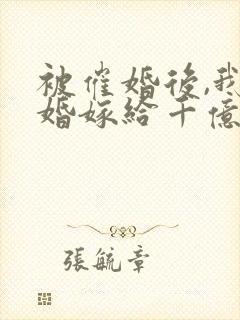 被催婚後,我
婚嫁給千億
張毓章